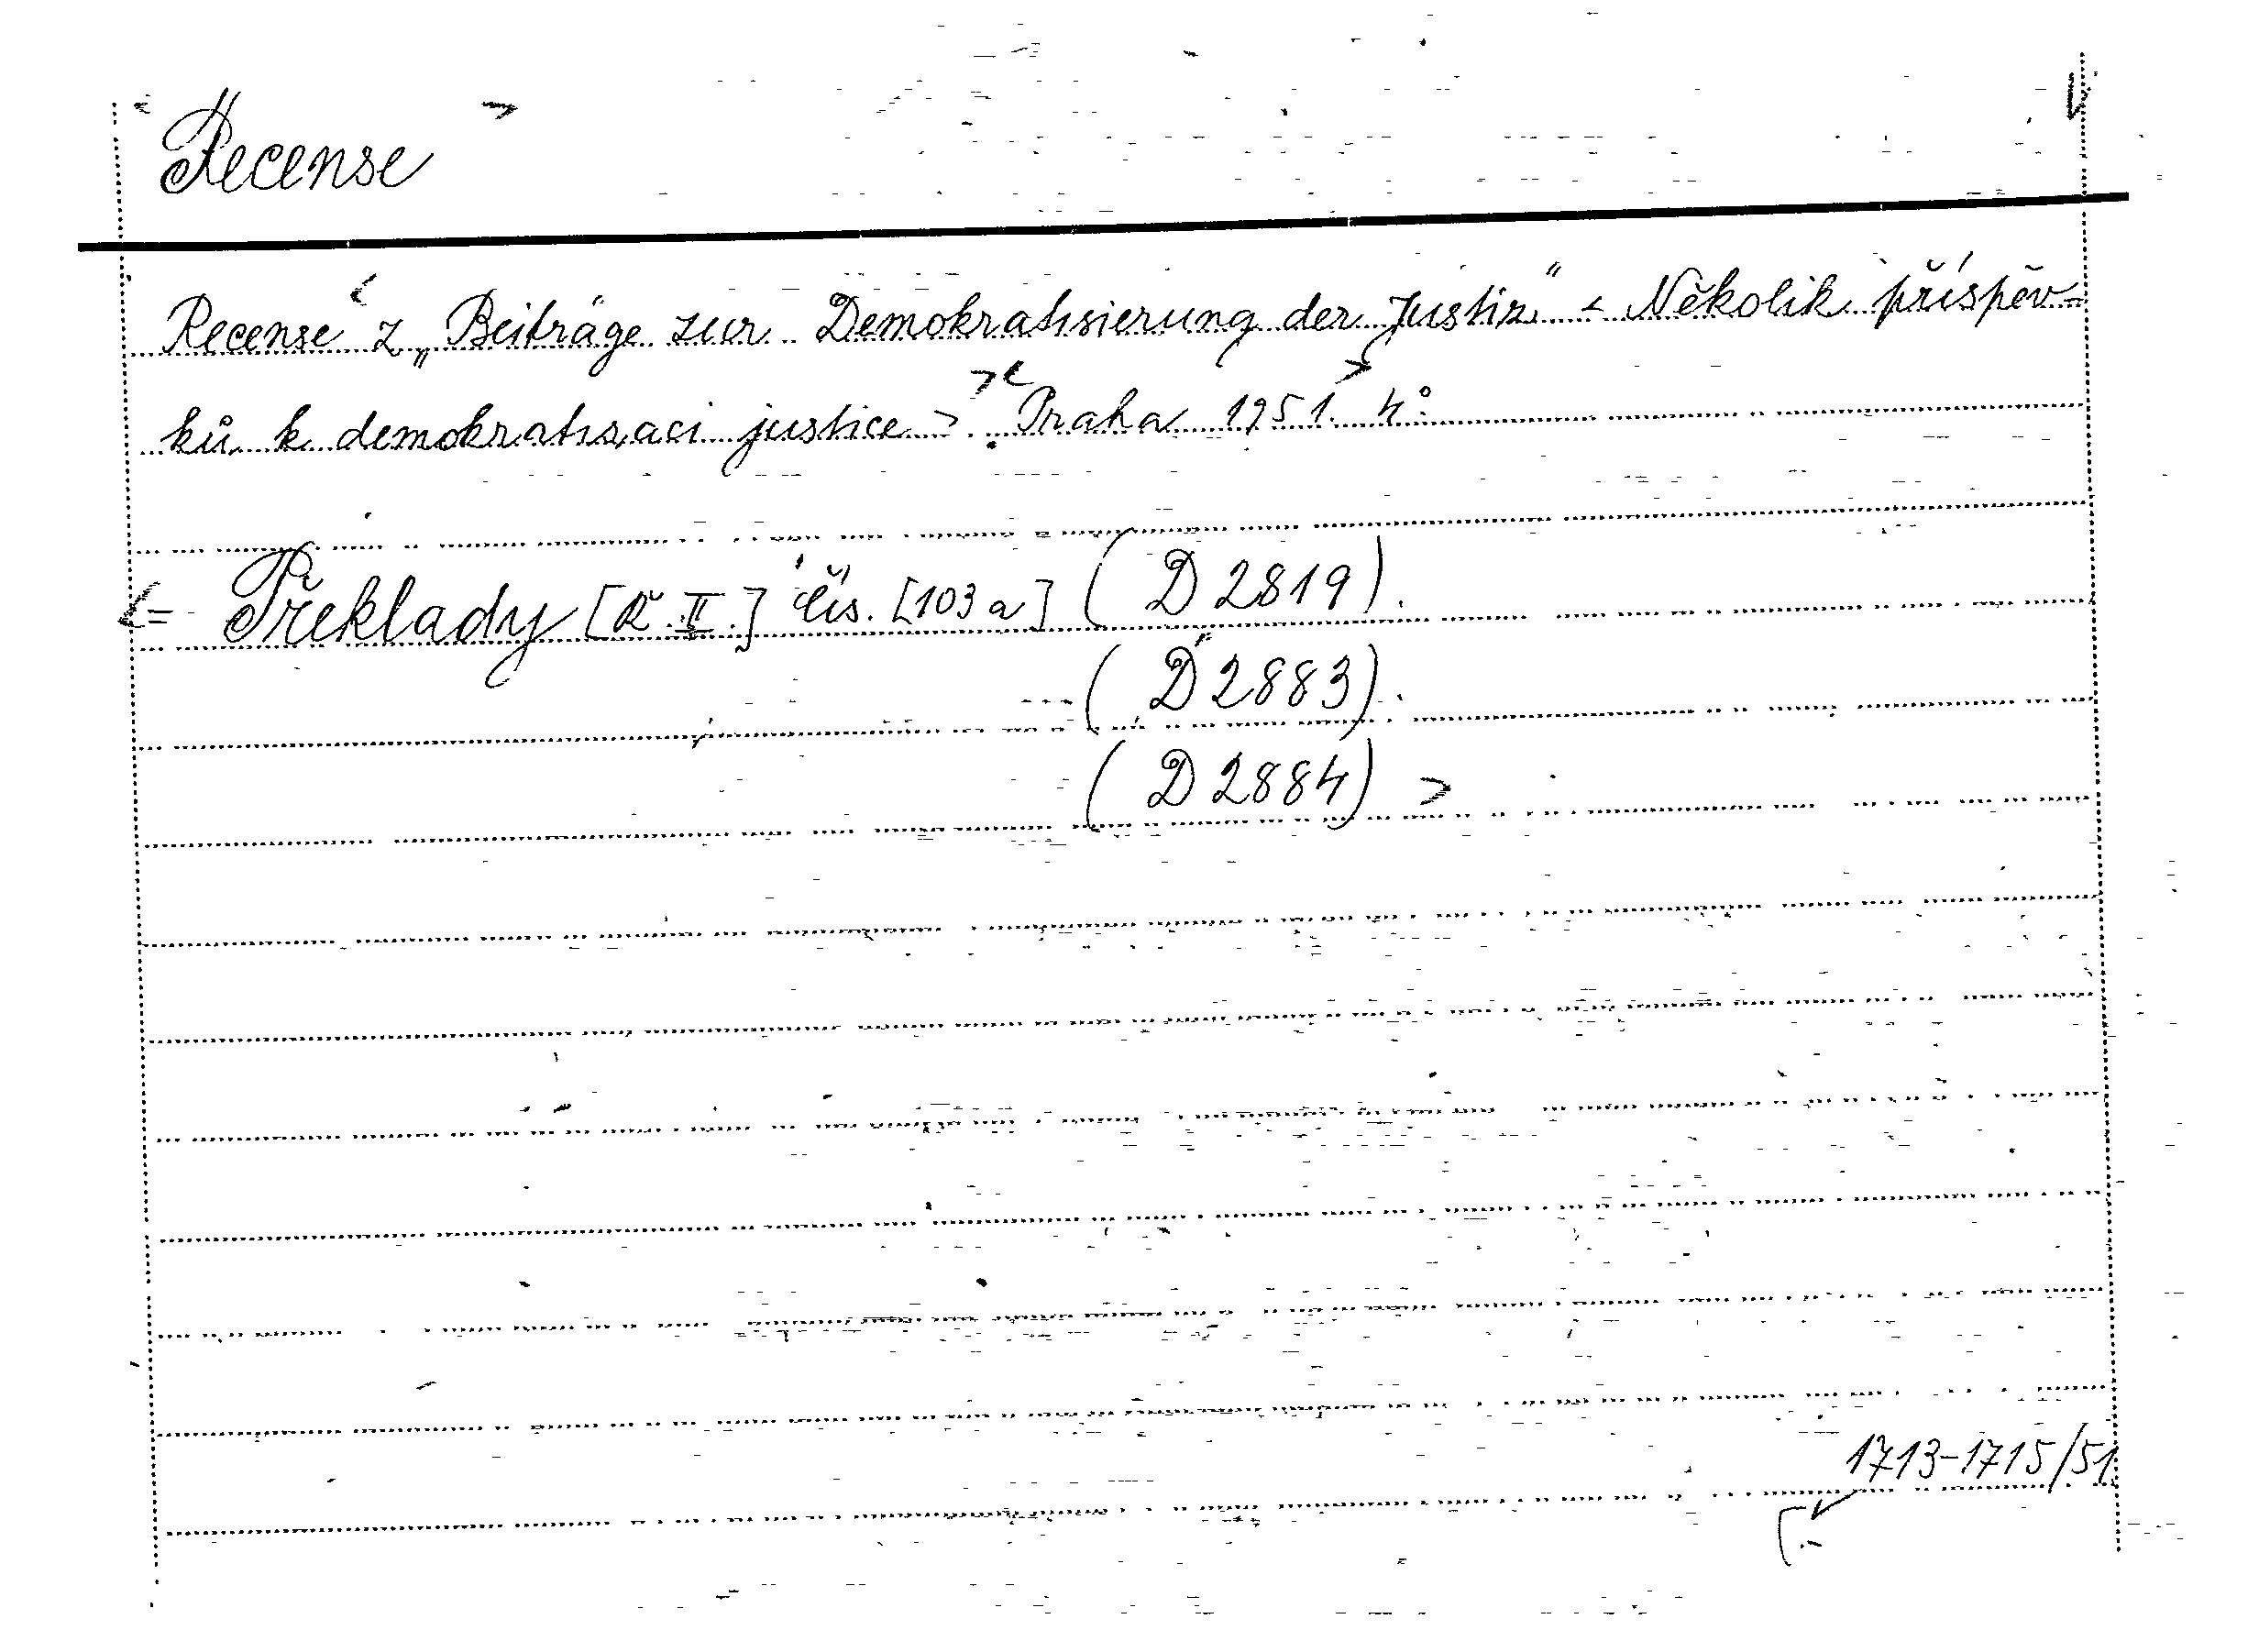 Recense
Recense z „Beiträge zur Demokratisierung der Justiz" < Několik příspěv-
ků k demokratisaci justice >. Praha 1951. 4°.
= Překlady [Ř. II.] čís. [103 a] (D 2819).
(D 2883).
(D 2884)
1713-1715/51